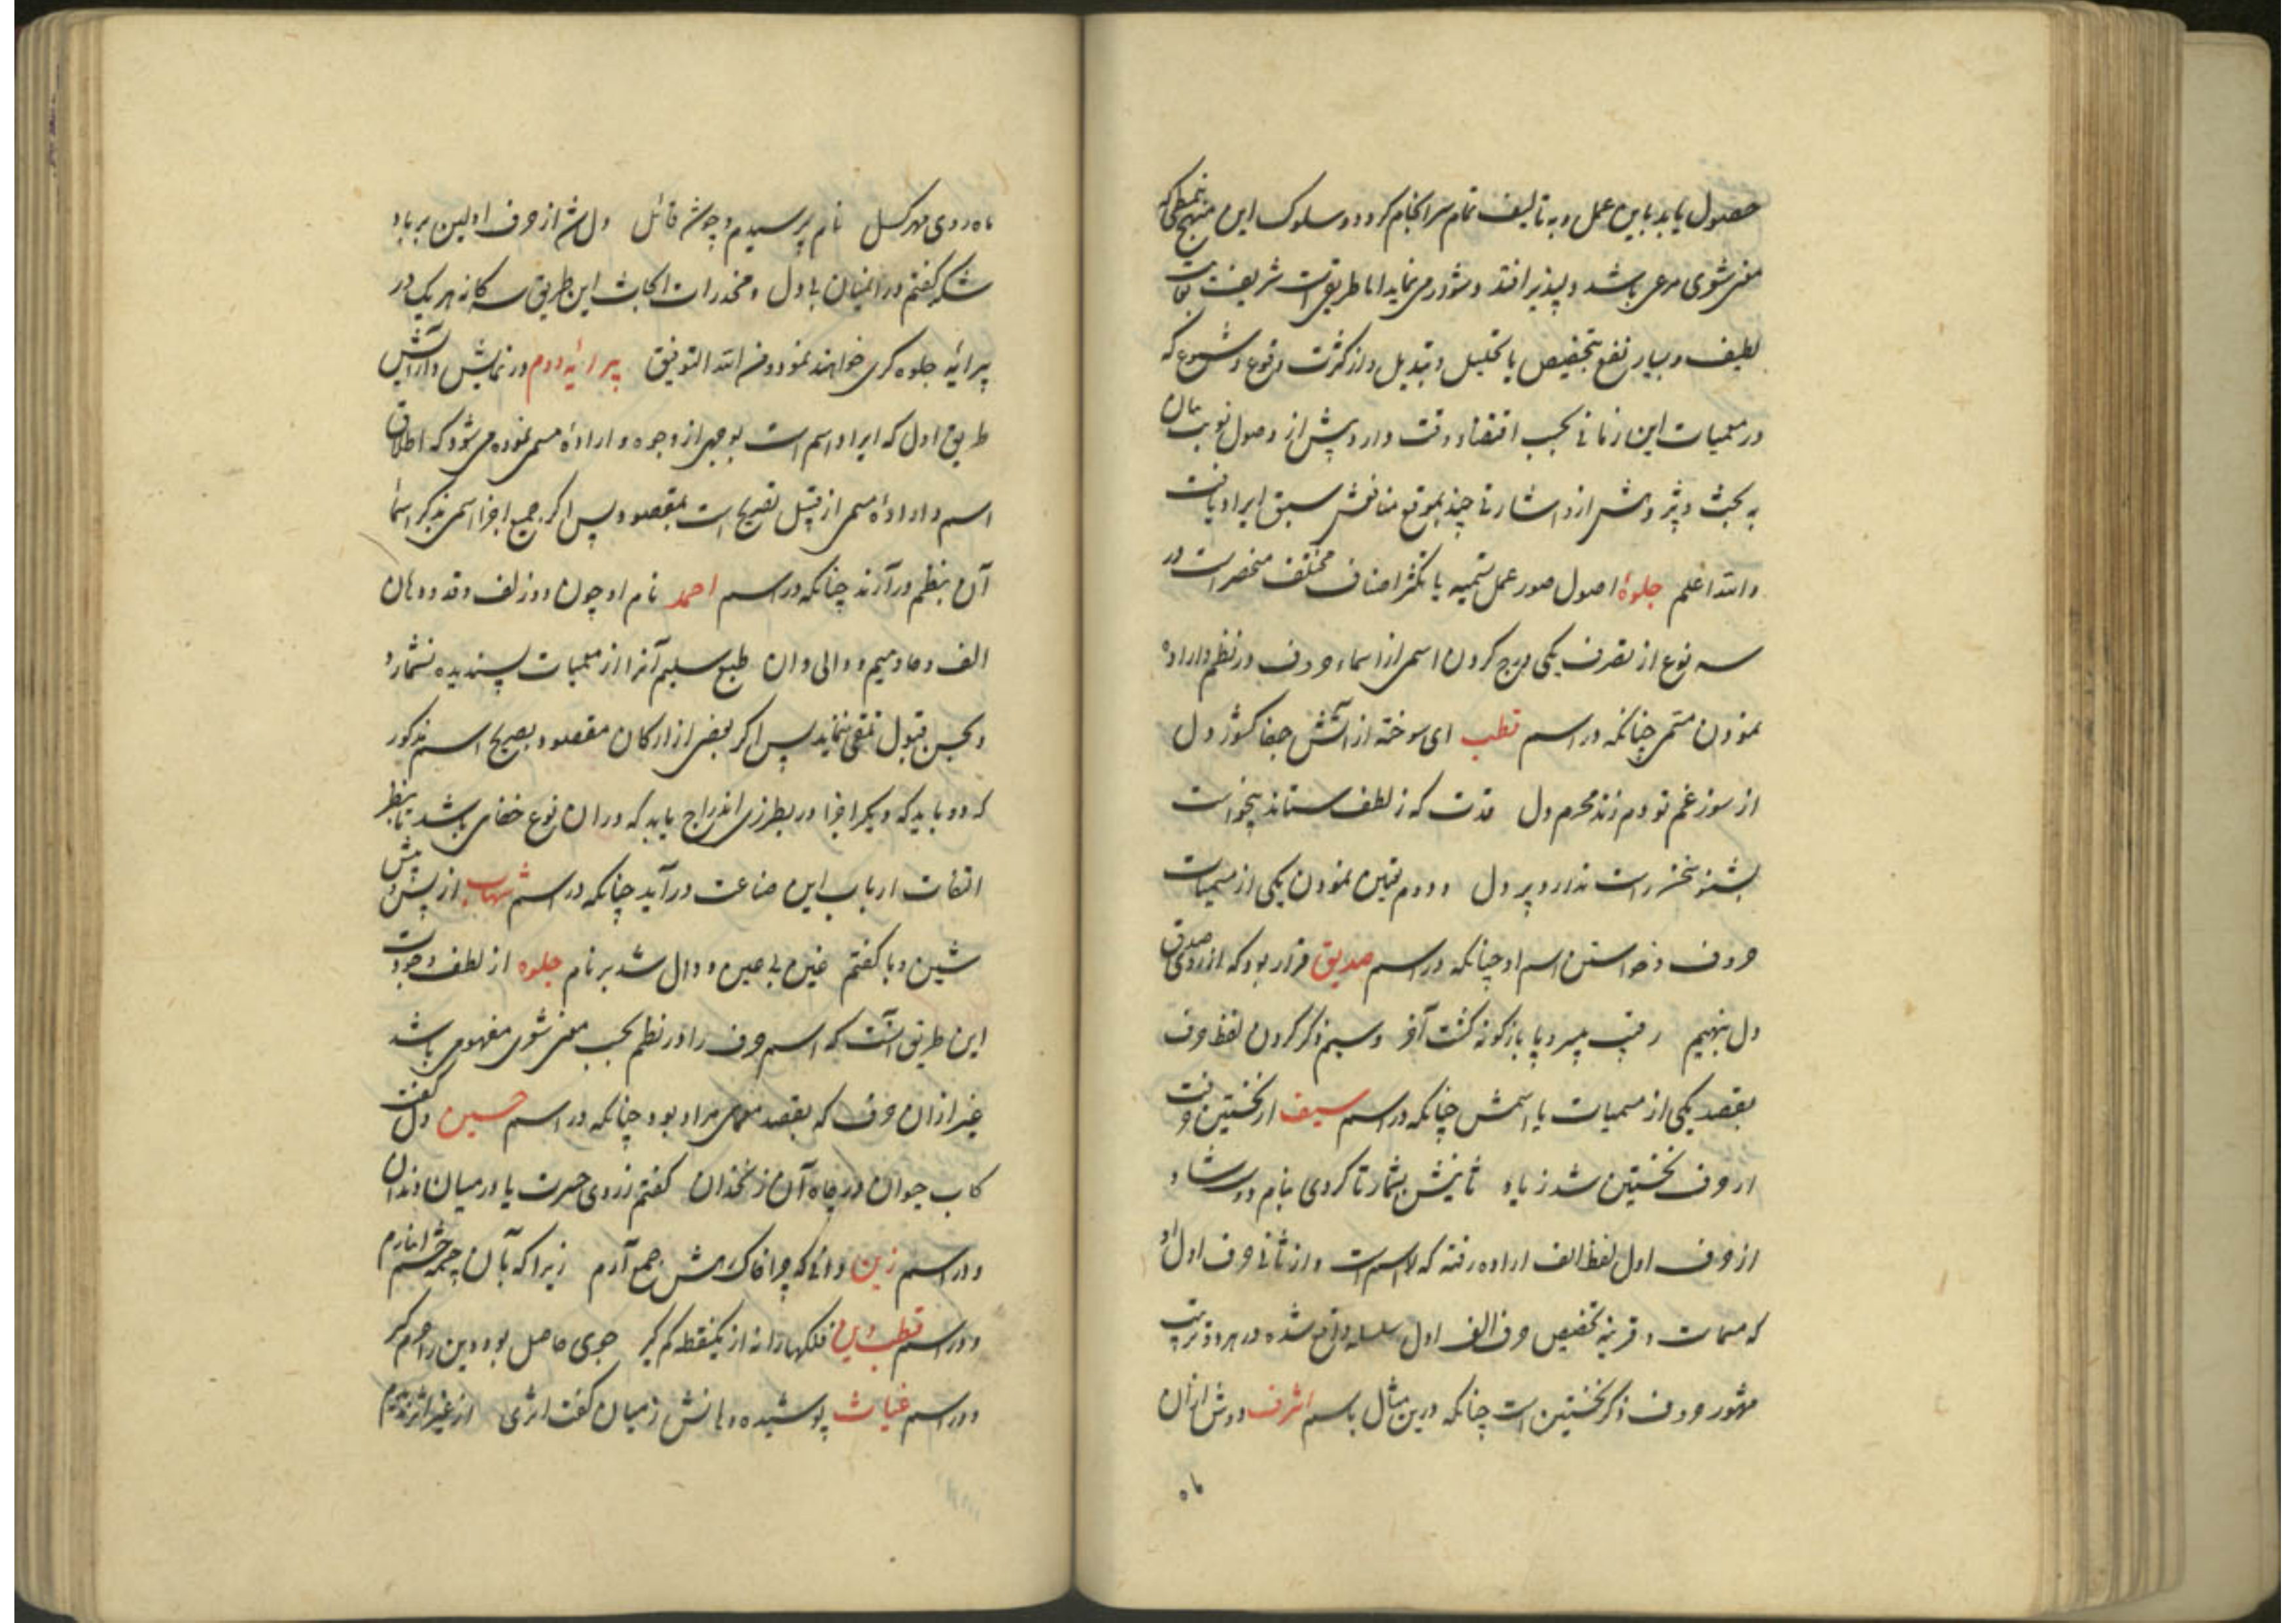 حصول یابد باین عمل و به تألیف تمام سرانجام گردد و سلوک این منهج بنمطی که
معنی شعری مرعی باشد و لپذیر افتد دشوار می‌نماید اما طریق است شریف بغایت
لطیف و بسیار نفع بتخصیص با تحلیل و تبدیل و از کثرت وقوع و شیوع که
در معمیات این زمانی بحسب اقتضاء وقت دارد پیش از وصول نوبت بیان
به بحث و پژوهش از و اشارتی چند بموقع مناقش سبق ایراد یافت
والله اعلم جلوهٔ اصول صور عمل تسمیه با تکثر اصناف مختلف منحصر است در
سه نوع از تصرف یکی درج کردن اسمی از اسماء حروف در نظم و اراده
نمودن مسمی چنانکه در اسم قطب ای سوخته از آتش جفا کشور دل
از سوز غم تو دم زند محرم دل قدت که ز لطف ستاند بیخواست
بشنو سخنی راست ندارد بر دل و دوم تعین نمودن یکی از مسمیات
حروف و خواستن اسم او چنانکه در اسم صدیق قرار بود که از روی صدق
دل بنهیم رقیب بیسر و پا بازگونه گشت آخر و سیم ذکر کردن لفظ حرف
بقصد یکی از مسمیات یا اسمش چنانکه در اسم سیف از نخستین حرفت
از حرف نخستین شد زیاد ثانیش بشمار تا گردی بنام دوست شاد
از حرف اول لفظ الف اراده رفته که لا اسم است و از ثانی حرف اول او
که مسمات و قرینه تخصیص حرف الف اول سلسله واقع شده در هر دو ترتیب
مشهور حروف ذکر نخستین است چنانکه درین مثال باسم اشرف دوش از آن
ماه
ماه روی مهرگسل نام پرسیدم و چوشد قائل دل شد از حرف اولین بر باد
شکر گفتم در آنمیان با دل و مخدرات ابحاث این طریق سه کانه هر یک در
پیرایهٔ جلوه گری خواهند نمود و من الله التوفیق پیرایهٔ دوم در نمایش و آرایش
طریق اول که ایراد اسم است بوجهی از وجوه و ارادهٔ مسمی نموده می‌شود که اطلاق
اسم و ارادهٔ مسمی از قبیل تصریح است بمقصود پس اگر جمیع اجزا اسمی بذکر اسما
آن بنظم در آرند چنانکه در اسم احمد نام او چون دو زلف و قد و دهان
الف و حا و میم و دالی دان طبع سلیم آنرا از معمیات پسندیده نشمارد
و بحسن قبول تلقی ننماید پس اگر بعضی از ارکان مقصود بصریح اسم مذکور
کردد باید که دیگر اجزا در بطرزی اندراج یابد که در ان نوع خفائی باشد تا بنظر
التفات ارباب این صناعت در آید چنانکه در اسم شهاب از پس و پیش
شین و با گفتم عین بی عین و دال شد بر نام جلوه از لطف وجوه
این طریق آنست که اسم حرف را در نظم بحسب معنی شعری مفهومی باشد
غیر از ان حرف که بقصد معمائی مراد بود چنانکه در اسم حسین دل گفت
کاب حیوان در چاه آن زنخدان گفتم ز روی حسرت یا در میان دندان
و در اسم زین دانی که چرا خاک رهش جمع آرم زیرا که بآن چشمه چشم انبارم
و در اسم قطب الدین فلکها را نه از یکنقطه کم گیر جوی حاصل بود دین را حرم گیر
و در اسم غیاث پوشیده دهانش ز میان گفت اثری از غیر اثر ندیدم